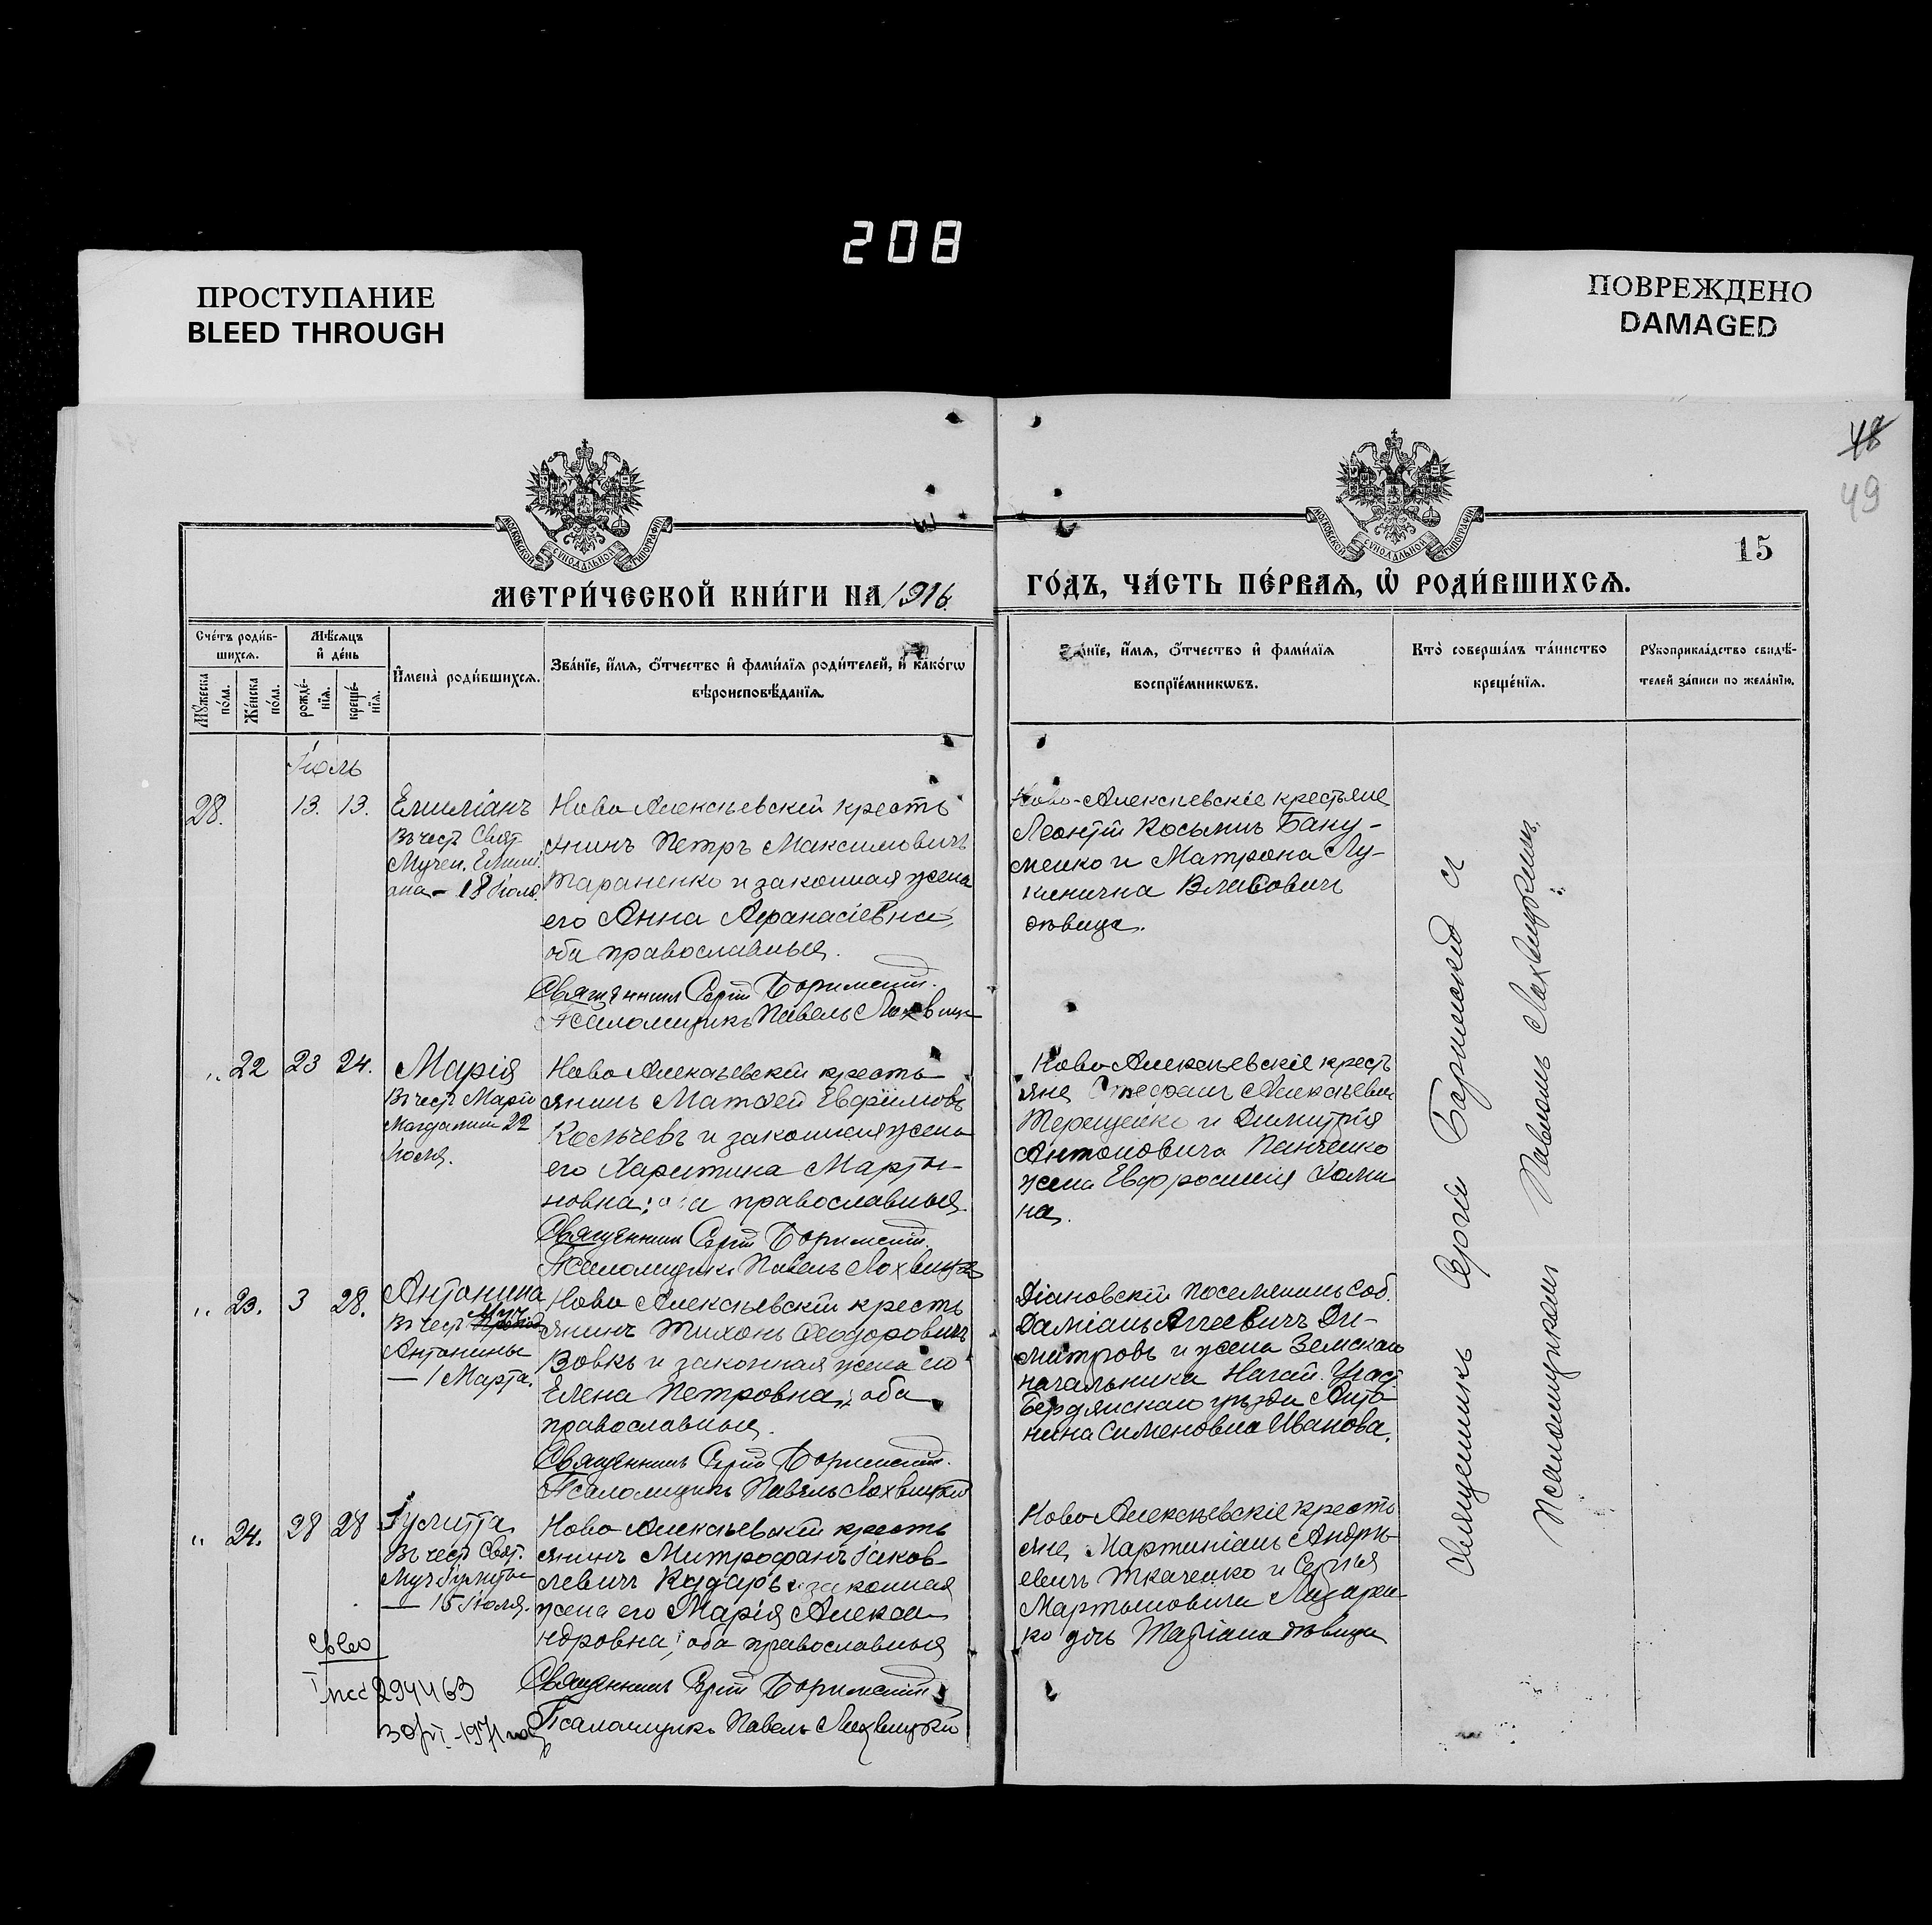 208
ПРОСТУПАНИЕ
BLEED THROUGH
ПОВРЕЖДЕНО
DAMAGED
48
49
МОСКОВСКОЙ СѴНОДАЛЬНОЙ ТИПОГРАФІИ
МОСКОВСКОЙ СѴНОДАЛЬНОЙ ТИПОГРАФІИ
15
МЕТРИ́ЧЕСКОЙ КНИ́ГИ НА 1916.
ГО́ДЪ, ЧА́СТЬ ПЕ́РВАѦ, Ѡ҆ РОДИ́ВШИХСѦ.
Сче́тъ роди́в-
шихсѧ.
Мꙋ́жеска по́ла.
Же́нска по́ла.
Мѣ́сѧцъ
и҆ де́нь
рожде́-
нїѧ.
креще́-
нїѧ.
И҆мена̀ роди́вшихсѧ.
Зва́нїе, и҆́мѧ, ѻ҆́тчество и҆ фами́лїѧ роди́телей, и҆ како́гѡ
вѣроисповѣ́данїѧ.
Зва́нїе, и҆́мѧ, ѻ҆́тчество и҆ фами́лїѧ
воспрїе́мникѡвъ.
Кто̀ соверша́лъ та́инство
креще́нїѧ.
Рꙋкоприкла́дство свидѣ́-
телей за́писи по жела́нїю.
Іюль
28. 13. 13. Емиліанъ
Въ честь Свят.
Мучен. Емилі
ана – 18 Іюля.
Ново Алексѣевскій кресть
янинъ Петръ Максимовичъ
Тараненко и законная жена
его Анна Афанасіевна,
оба православные.
Священникъ Сергій Боримскій.
Псаломщикъ Павелъ Лохвицк
Ново-Алексѣевскіе крестьяне
Леонтій Косьминъ Баку-
менко и Матрона Лу-
кинична Власовичъ
дѣвица.
„ 22 23 24. Марія
Въ честь Маріи
Магдалины 22
Іюля.
Ново Алексѣевскій кресть
янинъ Матѳей Евфимовъ
Кольчевъ и законная жена
его Харитина Марты-
новна; оба православные.
Священникъ Сергій Боримскій.
Псаломщикъ Павелъ Лохвицкій
Ново Алексѣевскіе кресть
яне Стефанъ Алексѣевъ
Терещенко и Димитрія
Антоновича Панченко
жена Евфросинія Фоми
на.
„ 23. 3 28. Антонина
Въ честь Муч.
Антонины
— 1 Марта.
Ново Алексѣевскій кресть
янинъ Тихонъ Ѳеодоровичъ
Вовкъ и законная жена его
Елена Петровна; оба
православные.
Священникъ Сергій Боримскій.
Псаломщикъ Павелъ Лохвицкій
Діановскій поселянинъ соб.
Даміанъ Ди-
митровъ и жена Земскаго
начальника Ногай. Участ.
Бердянскаго уѣзда Анто-
нина Сименовна Иванова.
„ 24. 28 28 Іулитта
Въ честь Свят.
Муч Іулитты
— 15 Іюля.
Ново Алексѣевскій кресть
янинъ Митрофанъ Іаков-
левичъ и законная
жена его Марія Алекса
ндровна; оба православные
Священникъ Сергій Боримскій
Псаломщикъ Павелъ Лохвицкій
Ново Алексѣевскіе кресть
яне Мартиніанъ Андрѣ-
евичъ Ткаченко и Сергѣя
Мартыновича Лазарен
ко дочь Татіана дѣвица
Священникъ Сергій Боримскій и
Псаломщикомъ Павломъ Лохвицкимъ.
294463